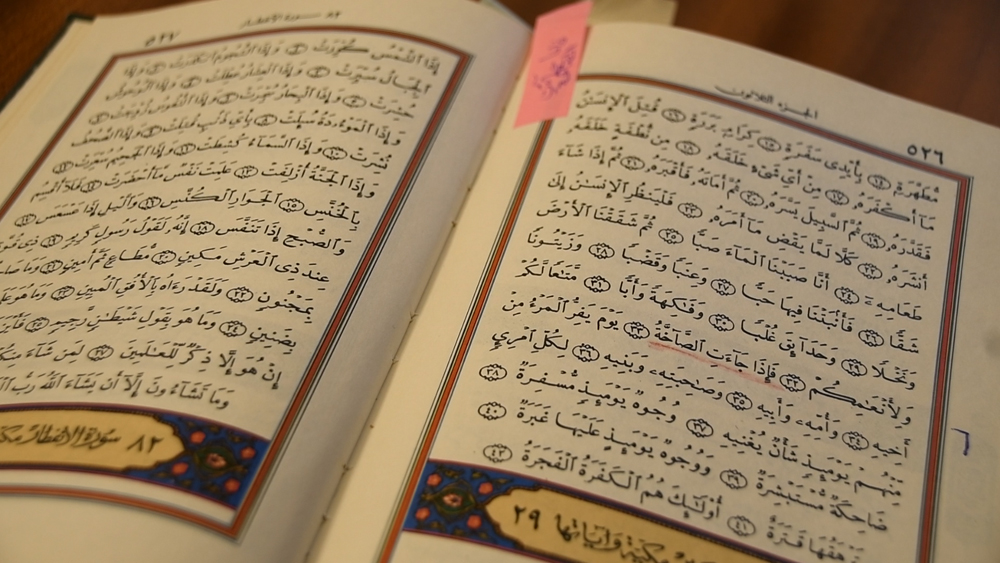 الجزء الثلاثون
٥٢٦
مُّطَهَّرَةٍۭ ١٤ بِأَيْدِى سَفَرَةٍ ١٥ كِرَامٍۭ بَرَرَةٍ ١٦ قُتِلَ ٱلْإِنسَٰنُ
مَآ أَكْفَرَهُۥ ١٧ مِنْ أَىِّ شَىْءٍ خَلَقَهُۥ ١٨ مِن نُّطْفَةٍ خَلَقَهُۥ
فَقَدَّرَهُۥ ١٩ ثُمَّ ٱلسَّبِيلَ يَسَّرَهُۥ ٢٠ ثُمَّ أَمَاتَهُۥ فَأَقْبَرَهُۥ ٢١ ثُمَّ إِذَا شَآءَ
أَنشَرَهُۥ ٢٢ كَلَّا لَمَّا يَقْضِ مَآ أَمَرَهُۥ ٢٣ فَلْيَنظُرِ ٱلْإِنسَٰنُ إِلَىٰ
طَعَامِهِۦٓ ٢٤ أَنَّا صَبَبْنَا ٱلْمَآءَ صَبًّا ٢٥ ثُمَّ شَقَقْنَا ٱلْأَرْضَ
شَقًّا ٢٦ فَأَنۢبَتْنَا فِيهَا حَبًّا ٢٧ وَعِنَبًا وَقَضْبًا ٢٨ وَزَيْتُونًا
وَنَخْلًا ٢٩ وَحَدَآئِقَ غُلْبًا ٣٠ وَفَٰكِهَةً وَأَبًّا ٣١ مَّتَٰعًا لَّكُمْ
وَلِأَنْعَٰمِكُمْ ٣٢ فَإِذَا جَآءَتِ ٱلصَّآخَّةُ ٣٣ يَوْمَ يَفِرُّ ٱلْمَرْءُ مِنْ
أَخِيهِ ٣٤ وَأُمِّهِۦ وَأَبِيهِ ٣٥ وَصَٰحِبَتِهِۦ وَبَنِيهِ ٣٦ لِكُلِّ ٱمْرِئٍ
مِّنْهُمْ يَوْمَئِذٍ شَأْنٌ يُغْنِيهِ ٣٧ وُجُوهٌ يَوْمَئِذٍ مُّسْفِرَةٌ ٣٨
ضَاحِكَةٌ مُّسْتَبْشِرَةٌ ٣٩ وَوُجُوهٌ يَوْمَئِذٍ عَلَيْهَا غَبَرَةٌ ٤٠
تَرْهَقُهَا قَتَرَةٌ ٤١ أُو۟لَٰٓئِكَ هُمُ ٱلْكَفَرَةُ ٱلْفَجَرَةُ ٤٢
مكية وآياتها ٢٩
٦
٨٢ سورة الانفطار
٥٢٧
إِذَا ٱلشَّمْسُ كُوِّرَتْ ١ وَإِذَا ٱلنُّجُومُ ٱنكَدَرَتْ ٢ وَإِذَا
ٱلْجِبَالُ سُيِّرَتْ ٣ وَإِذَا ٱلْعِشَارُ عُطِّلَتْ ٤ وَإِذَا ٱلْوُحُوشُ
حُشِرَتْ ٥ وَإِذَا ٱلْبِحَارُ سُجِّرَتْ ٦ وَإِذَا ٱلنُّفُوسُ زُوِّجَتْ ٧
وَإِذَا ٱلْمَوْءُۥدَةُ سُئِلَتْ ٨ بِأَىِّ ذَنۢبٍ قُتِلَتْ ٩ وَإِذَا ٱلصُّحُفُ
نُشِرَتْ ١٠ وَإِذَا ٱلسَّمَآءُ كُشِطَتْ ١١ وَإِذَا ٱلْجَحِيمُ سُعِّرَتْ ١٢
وَإِذَا ٱلْجَنَّةُ أُزْلِفَتْ ١٣ عَلِمَتْ نَفْسٌ مَّآ أَحْضَرَتْ ١٤ فَلَآ أُقْسِمُ
بِٱلْخُنَّسِ ١٥ ٱلْجَوَارِ ٱلْكُنَّسِ ١٦ وَٱلَّيْلِ إِذَا عَسْعَسَ ١٧
وَٱلصُّبْحِ إِذَا تَنَفَّسَ ١٨ إِنَّهُۥ لَقَوْلُ رَسُولٍ كَرِيمٍ ١٩ ذِى قُوَّةٍ
عِندَ ذِى ٱلْعَرْشِ مَكِينٍ ٢٠ مُّطَاعٍ ثَمَّ أَمِينٍ ٢١ وَمَا
بِمَجْنُونٍ ٢٢ وَلَقَدْ رَءَاهُ بِٱلْأُفُقِ ٱلْمُبِينِ ٢٣ وَمَا هُوَ
بِضَنِينٍ ٢٤ وَمَا هُوَ بِقَوْلِ شَيْطَٰنٍ رَّجِيمٍ ٢٥ فَأَيْنَ
إِنْ هُوَ إِلَّا ذِكْرٌ لِّلْعَٰلَمِينَ ٢٧ لِمَن شَآءَ مِنكُمْ
وَمَا تَشَآءُونَ إِلَّآ أَن يَشَآءَ ٱللَّهُ رَبُّ
٨٢ سورة الانفطار